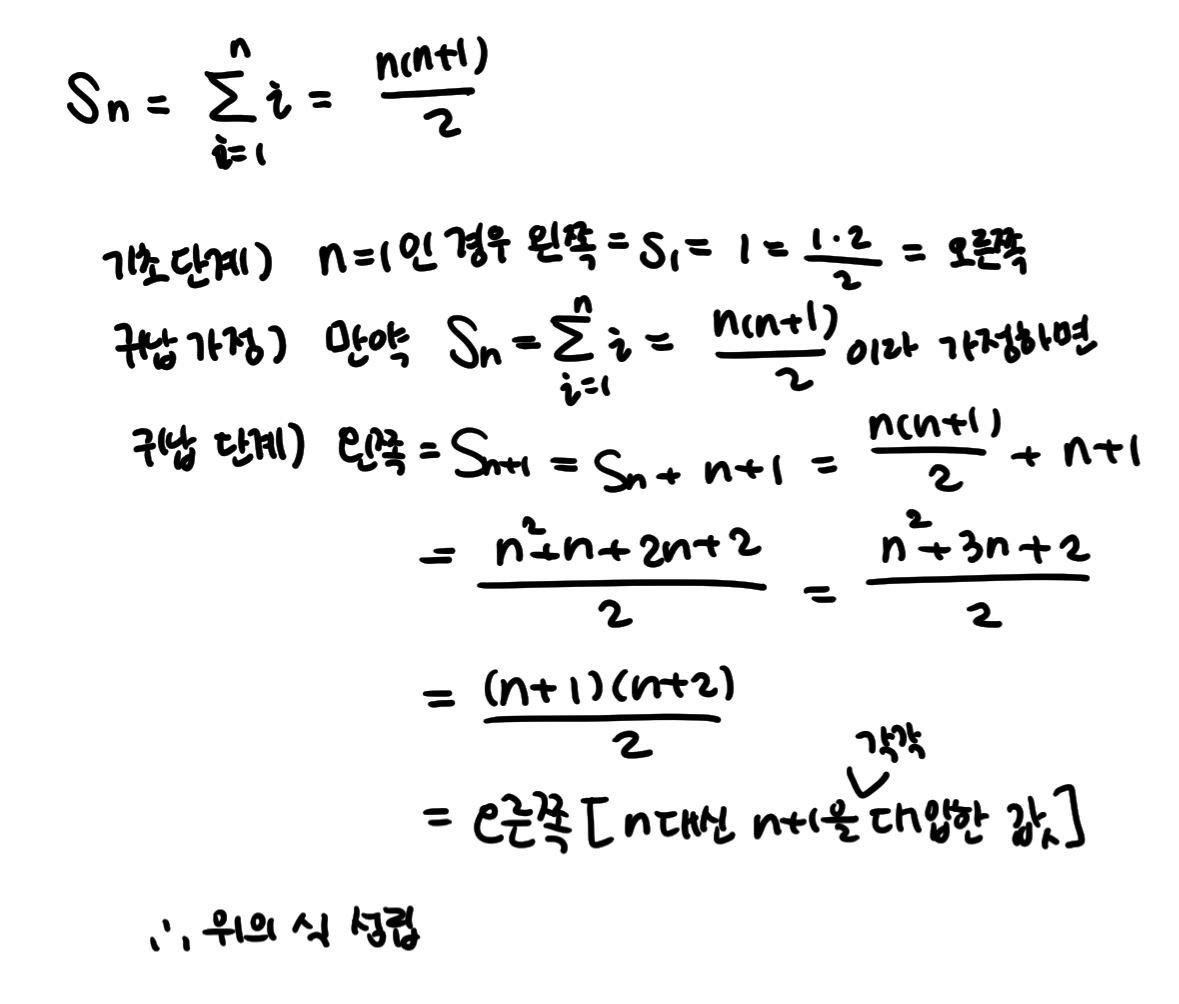 Sₙ = ∑ᵢ₌₁ⁿ i = n(n+1)/2
기초단계) n=1인 경우 왼쪽 = S₁ = 1 = 1·2/2 = 오른쪽
귀납가정) 만약 Sₙ = ∑ᵢ₌₁ⁿ i = n(n+1)/2 이라 가정하면
귀납 단계) 왼쪽 = Sₙ₊₁ = Sₙ + n+1 = n(n+1)/2 + n+1
= (n²+n+2n+2)/2 = (n²+3n+2)/2
= (n+1)(n+2)/2
각각
= 오른쪽 [n대신 n+1을 대입한 값]
∴ 위의 식 성립